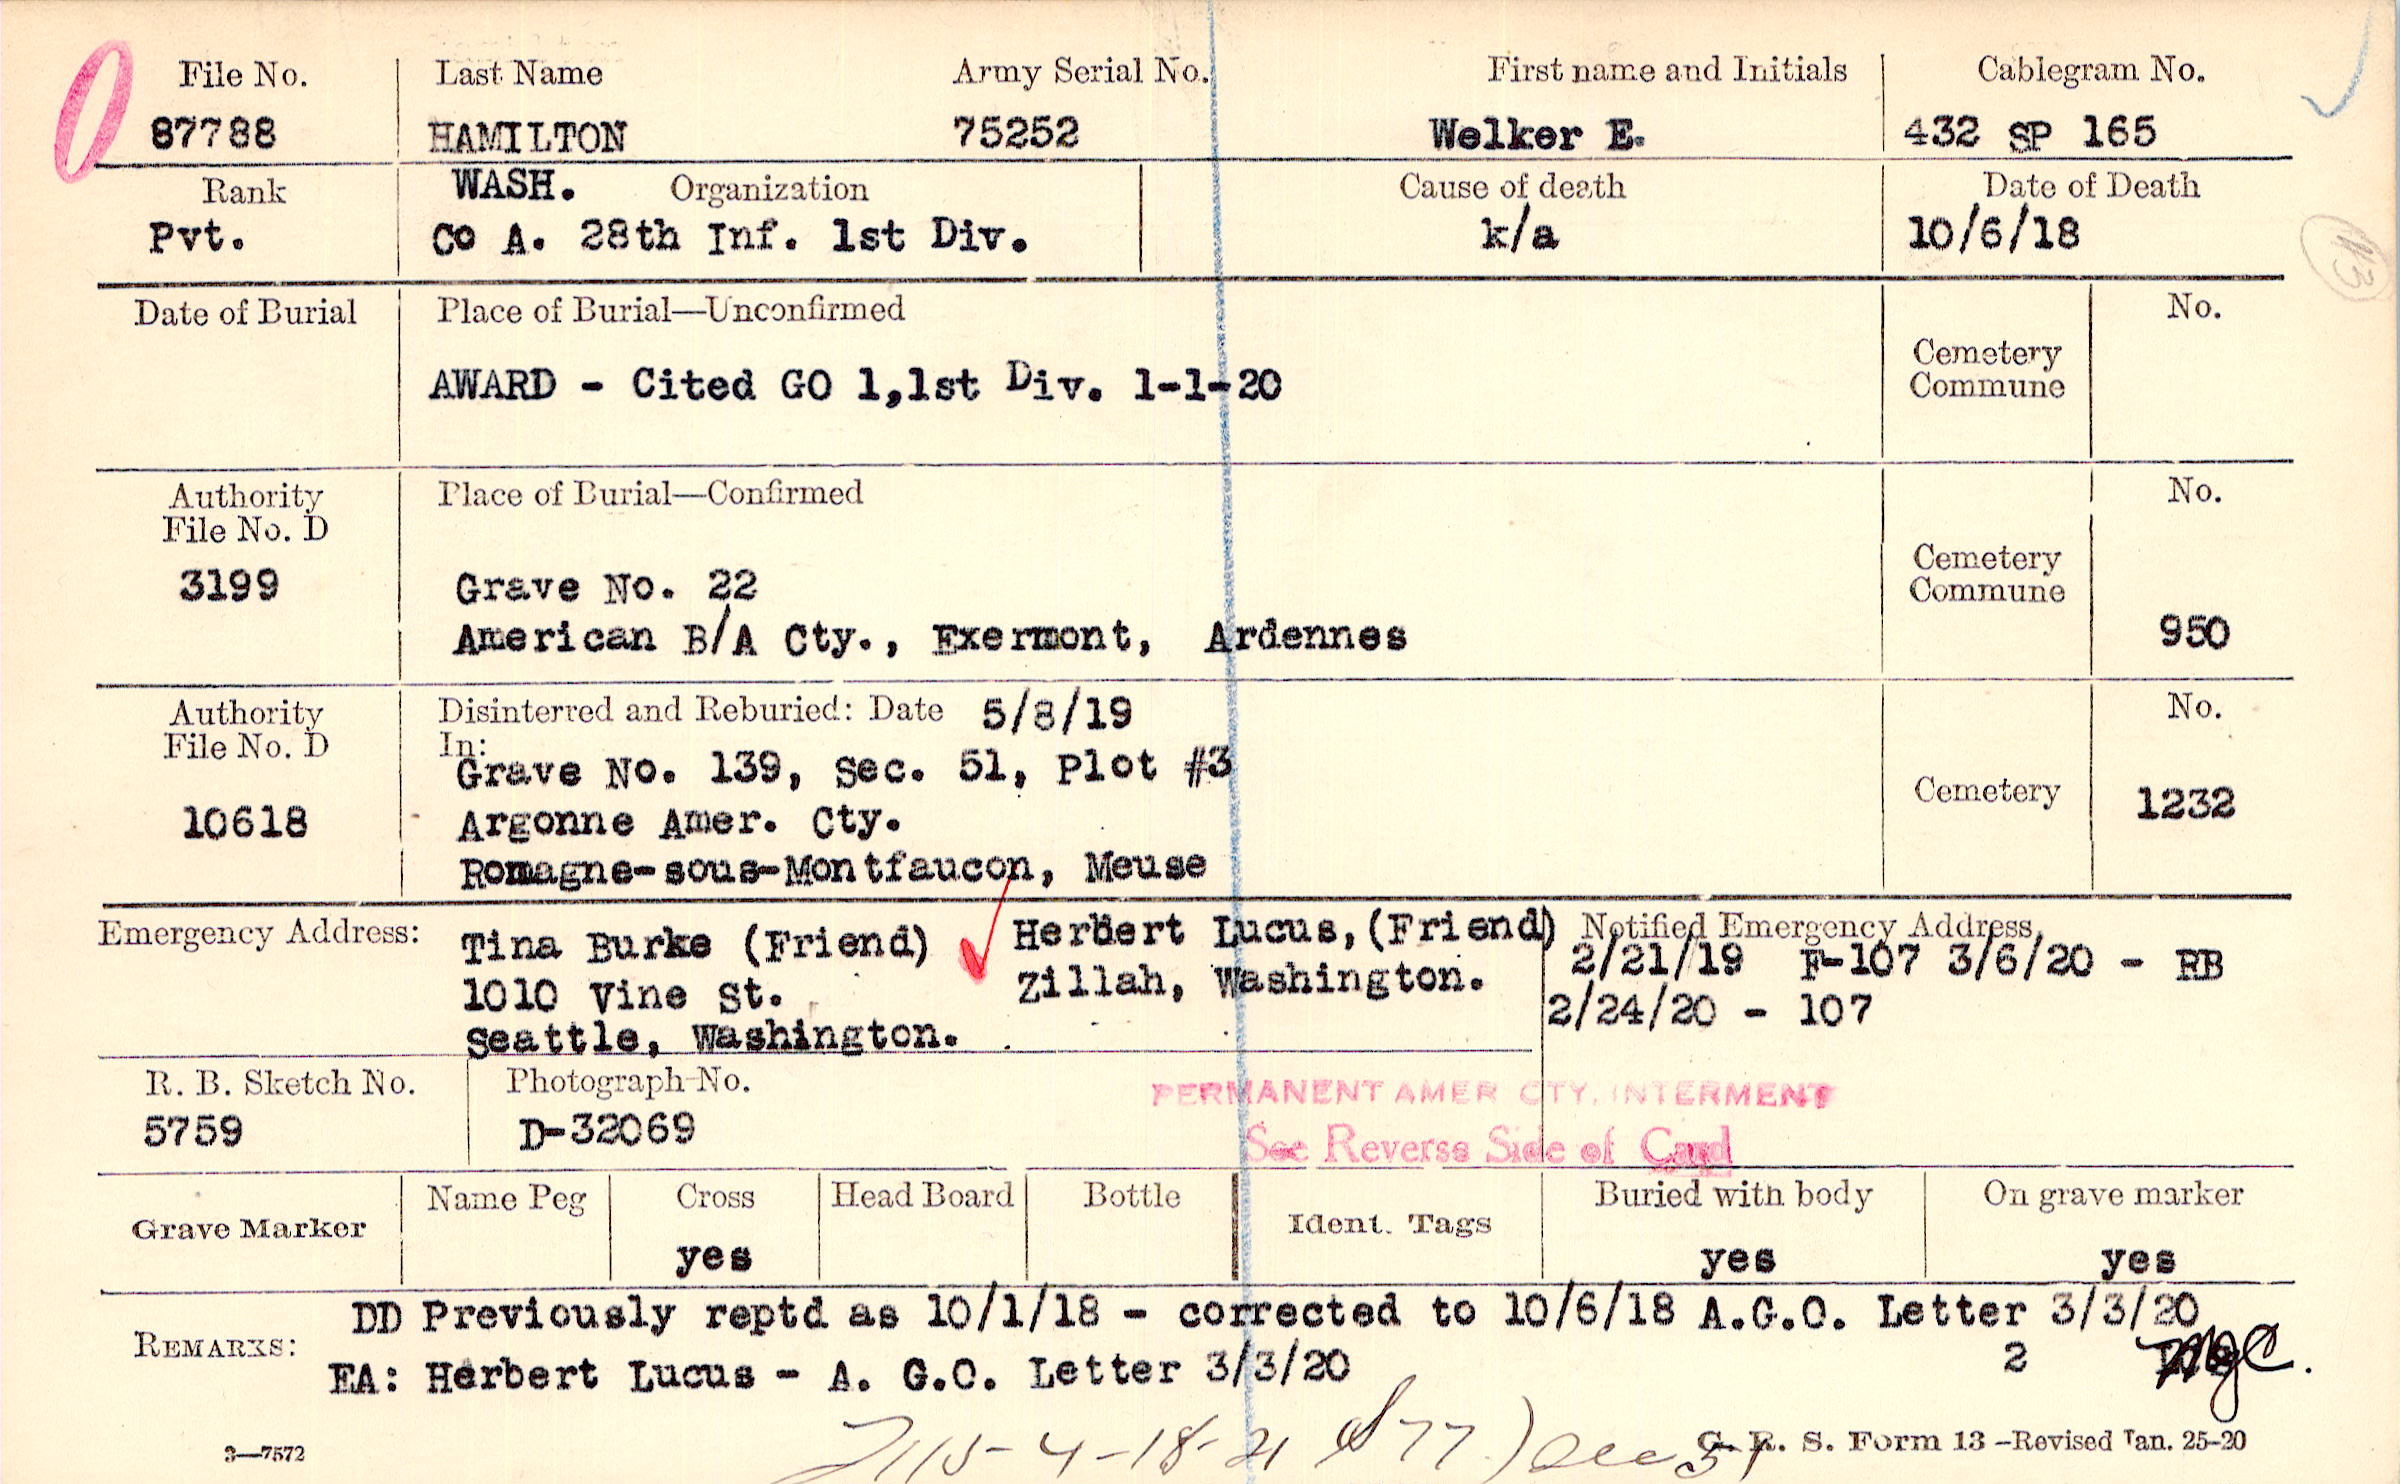 File No. Last Name Army Serial No. First name and Initials Cablegram No.
87788 HAMILTON 75252 Welker E. 432 SP 165
Rank WASH. Organization Cause of death Date of Death
Pvt. Co A. 28th Inf. 1st Div. k/a 10/6/18
Date of Burial Place of Burial—Unconfirmed No.
Cemetery
Commune
AWARD - Cited GO 1,1st Div. 1-1-20
Authority Place of Burial—Confirmed No.
File No. D
Cemetery
Commune
3199 Grave No. 22
American B/A Cty., Exermont, Ardennes 950
Authority Disinterred and Reburied: Date 5/8/19 No.
File No. D In:
Grave No. 139, Sec. 51, Plot #3
Cemetery 1232
10618 Argonne Amer. Cty.
Romagne-sous-Montfaucon, Meuse
Emergency Address: Tina Burke (Friend) Herbert Lucus, (Friend) Notified Emergency Address,
1010 Vine St. Zillah, Washington. 2/21/19 F-107 3/6/20 - RB
Seattle, Washington. 2/24/20 - 107
R. B. Sketch No. Photograph No.
5759 D-32069
PERMANENT AMER CTY. INTERMENT
See Reverse Side of Card
Grave Marker Name Peg Cross Head Board Bottle Ident. Tags Buried with body On grave marker
yes yes yes
REMARKS: DD Previously reptd as 10/1/18 - corrected to 10/6/18 A.G.O. Letter 3/3/20
EA: Herbert Lucus - A. G.O. Letter 3/3/20 2
4-18-21
3—7572 G. R. S. Form 13 -Revised Jan. 25-20